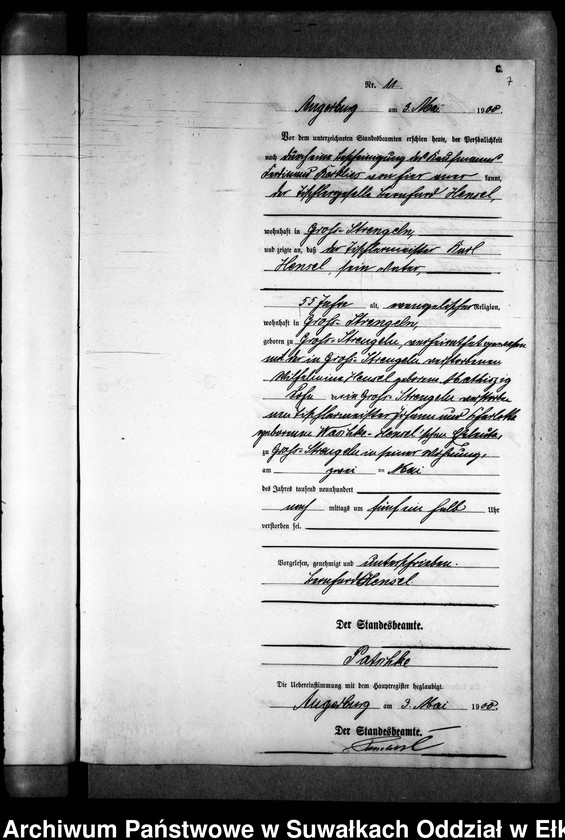 C.
7
Nr. 11
Angerburg am 3. Mai 1900.
Vor dem unterzeichneten Standesbeamten erschien heute, der Persönlichkeit
nach durch eine Bescheinigung des Kaufmanns
Ferdinand von hier aner kannt,
der Tischlergeselle Bernhard Hensel,
wohnhaft in Groß-Strengeln,
und zeigte an, daß der Tischlermeister Karl
Hensel, sein Vater,
55 Jahre alt, evangelischer Religion,
wohnhaft in Groß-Strengeln,
geboren zu Groß-Strengeln, verheirathet gewesen
mit der in Groß-Strengeln verstorbenen
Wilhelmine Hensel geborene
Sohn der in Groß-Strengeln verstorbe
nen Tischlermeister Johann und Charlotte
geborenen Waschke-Hensel'schen Eheleute,
zu Groß-Strengeln in seiner Wohnung,
am zwei ten Mai
des Jahres tausend neunhundert
nach mittags um fünf ein halb Uhr
verstorben sei.
Vorgelesen, genehmigt und unterschrieben.
Bernhard Hensel
Der Standesbeamte.
Patschke
Die Uebereinstimmung mit dem Hauptregister beglaubigt.
Angerburg am 3. Mai 1900.
Der Standesbeamte.
Archiwum Państwowe w Suwałkach Oddział w Ełk